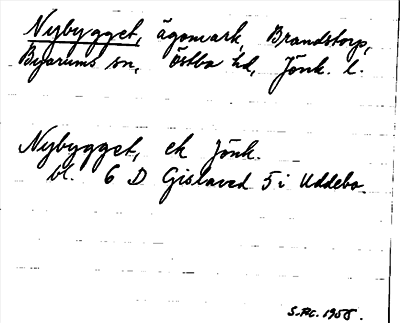 Nybygget, ägomark, Brandstorp,
Byarums sn, Östbo hd, Jönk. l.
Nybygget, ek Jönk.
bl. 6 D Gislaved 5 i Uddebo.
1958.